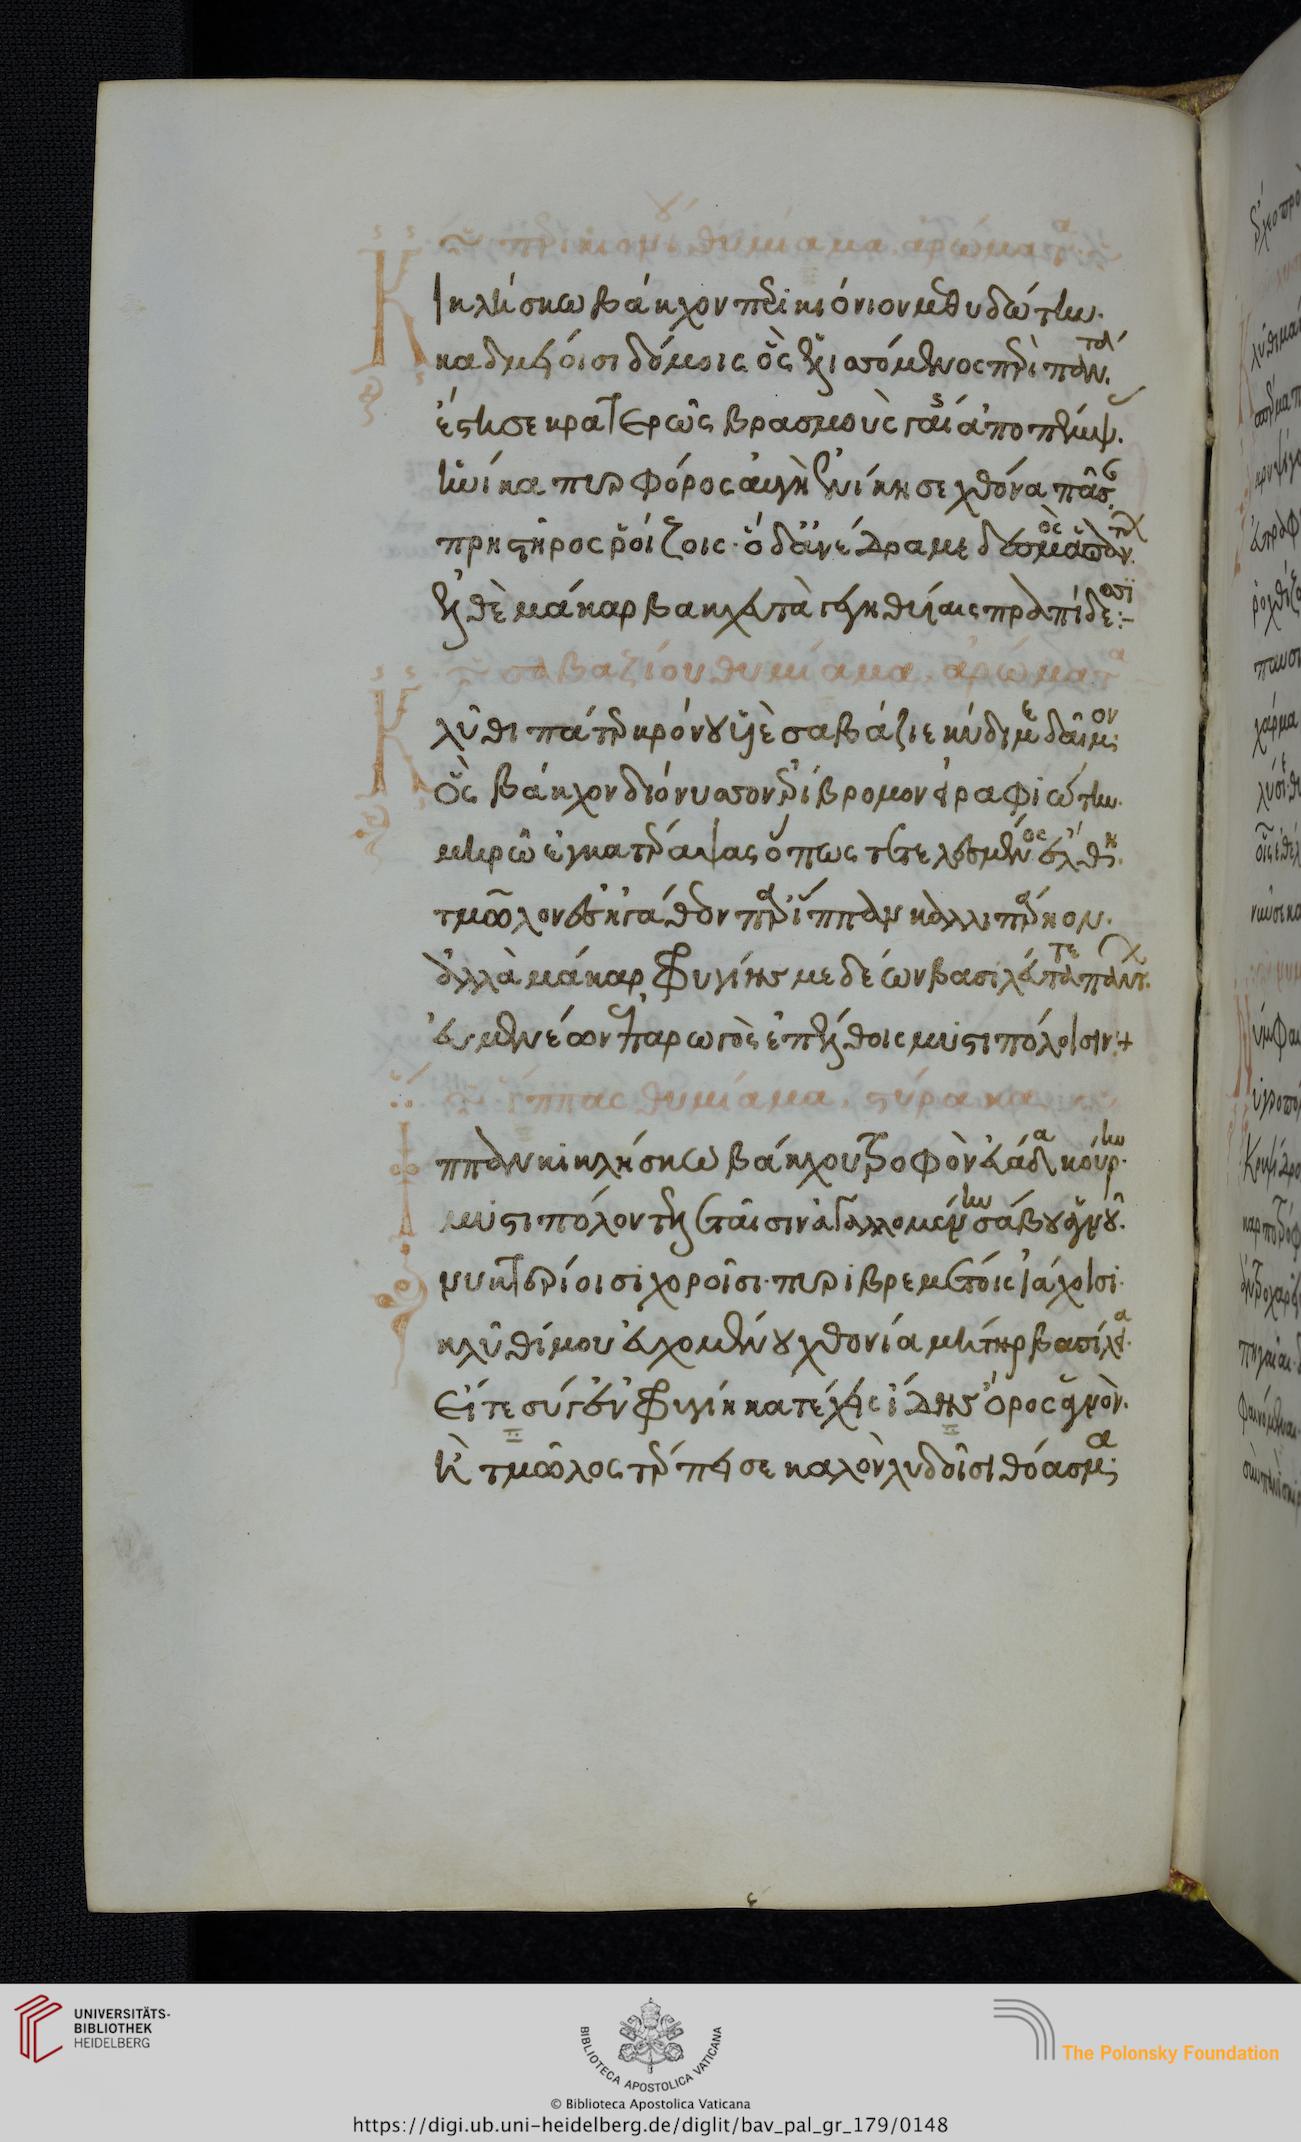 τοῦ περικιονίου θυμίαμα ἀρώματα
Κικλήσκω βάκχον περικιόνιον μεθυδώτην.
καδμείοισι δόμοις ὃς ἑλισσόμενος περὶ πάντη.
ἔστησε κρατερῶς βρασμοὺς γαίης ἀποπέμψας.
ἡνίκα πυρφόρος αὐγὴ ἐκίνησε χθόνα πᾶσαν.
πρηστῆρος ῥοίζοις. ὃ δ' ἀνέδραμε δεσμὸς ἁπάντων.
ἐλθὲ μάκαρ βακχευτὰ γεγηθυίαις πραπίδεσσι:-
τοῦ σαβαζίου θυμίαμα. ἀρώματα
Κλῦθι πάτερ κρόνου υἱὲ σαβάζιε κύδιμε δαῖμον.
ὃς βάκχον διόνυσον ἐρίβρομον εἰραφιώτην.
μηρῶ ἐγκατέραψας ὅπως τετελεσμένος ἔλθη.
τμῶλον ἐς ἠγάθεον παρ' ἵππαν καλλιπάρηον.
ἀλλὰ μάκαρ φρυγίης μεδέων βασιλεύτατε πάντων.
εὐμενέων ἐπαρωγὸς ἐπέλθοις μυστιπόλοισιν:+
τῆς ἵππας θυμίαμα. στύρακα
Ἵππαν κικλήσκω βάκχου τροφὸν εὐάδα κούρην.
μυστιπόλον τελεταῖσιν ἀγαλλομένην σάβου ἁγνοῦ.
νυκτερίοισι χοροῖσι. πυριβρεμέταις ἰάχοισι.
κλῦθί μου εὐχομένου χθονία μήτηρ βασίλεια.
Εἴτε σύ γ' ἐν φρυγίη κατέχεις ἴδης ὄρος ἁγνόν.
ἢ τμῶλος τέρπει σε καλὸν λυδοῖσι θόασμα.
UNIVERSITÄTS-
BIBLIOTHEK
HEIDELBERG
BIBLIOTECA APOSTOLICA VATICANA
The Polonsky Foundation
© Biblioteca Apostolica Vaticana
https://digi.ub.uni-heidelberg.de/diglit/bav_pal_gr_179/0148